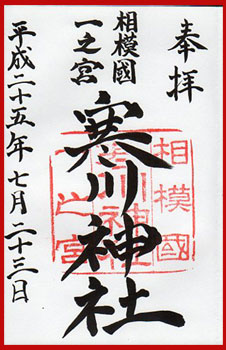 奉拝
相模國
一之宮
寒川神社
平成二十五年七月二十三日
相模國
寒川神社
一之宮